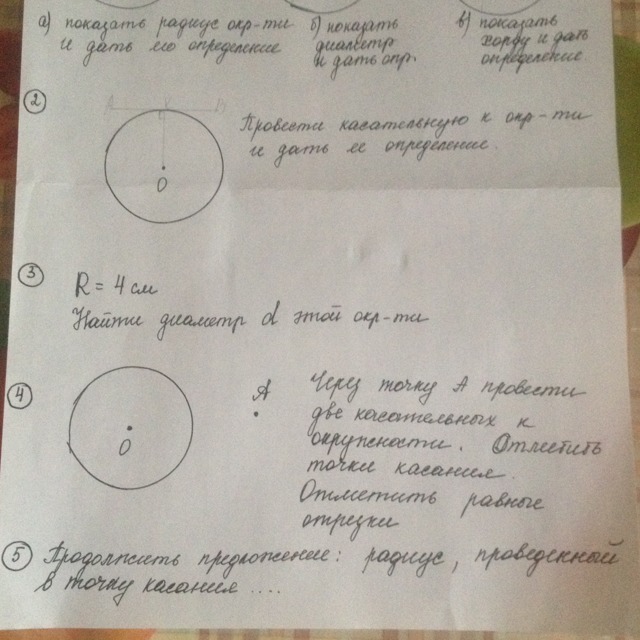 а) показать радиус окр-ти
и дать его определение
б) показать
диаметр
и дать опр.
в) показать
хорду и дать
определение.
2
А К В
О
Провести касательную к окр-ти
и дать ее определение.
3
R = 4 см
Найти диаметр d этой окр-ти
4
О
А
Через точку А провести
две касательных к
окружности. Отметить
точки касания.
Отметить равные
отрезки
5 Продолжить предложение: радиус, проведенный
в точку касания ....